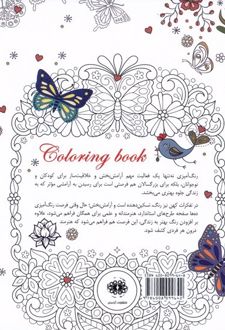 Coloring book
رنگ‌آمیزی نه‌تنها یک فعالیت مهم آرامش‌بخش و خلاقیت‌ساز برای کودکان و
نوجوانان، بلکه برای بزرگسالان هم فرصتی است برای رسیدن به آرامشی مؤثر که به
زندگی جلوه بهتری می‌بخشد.
در تفکرات کهن نیز رنگ، تسکین‌دهنده است و حال وقتی فرصت رنگ‌آمیزی
صفحه طرح‌های استاندارد، هنرمندانه و علمی برای همگان فراهم می‌شود، علاوه
بر افزودن رنگ بهتر به زندگی، این فرصت هم فراهم می‌شود که هنرمند
درون هر فردی کشف شود.